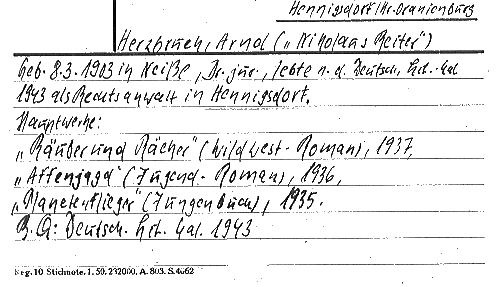 Hennigsdorf Kr. Oranienburg
Herzbruch, Arnd („Nikolaus Reiter")
Geb. 8.3.1903 in Neiße, Dr. jur., lebte n. d. Deutsch. Lit.-Kal.
1943 als Rechtsanwalt in Hennigsdorf.
Hauptwerke:
„Räuber und Rächer" (Wildwest-Roman), 1937,
„Affenjagd" (Jugend-Roman), 1936,
„Planetenflieger" (Jungenbuch), 1935.
B. Q: Deutsch. Lit. Kal. 1943
Reg. 10 Stichnote. 1. 50. 232000. A. 803. S. 4662